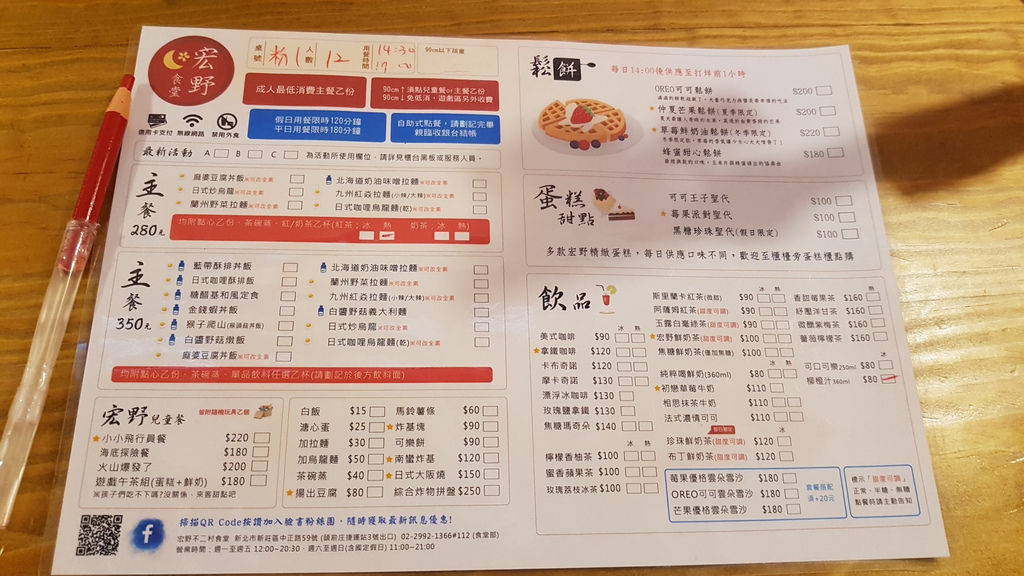 宏野
食堂
桌號 粉1 人數 12 用餐時間 14:30 17:00 90cm以下孩童
成人最低消費主餐乙份
90cm↑須點兒童餐or主餐乙份
90cm↓免低消,遊戲區另外收費
信用卡支付 無線網路 禁用外食
假日用餐限時120分鐘
平日用餐限時180分鐘
自助式點餐,請劃記完畢
親臨收銀台結帳
最新活動 A B C 為活動所使用欄位,請詳見櫃台黑板或服務人員。
主餐
280元
麻婆豆腐丼飯※可改全素
日式炒烏龍※可改全素
蘭州野菜拉麵※可改全素
北海道奶油味噌拉麵※可改全素
九州紅焱拉麵(小辣/大辣)※可改全素
日式咖哩烏龍麵(乾)※可改全素
均附點心乙份、茶碗蒸、紅/奶茶乙杯(紅茶:冰 熱 奶茶:冰 熱)
主餐
350元
藍帶酥排丼飯
日式咖哩酥排飯
糖醋基和風定食
金錢蝦丼飯
猴子爬山(猴頭菇丼飯)
白醬野菇燉飯
麻婆豆腐丼飯※可改全素
北海道奶油味噌拉麵※可改全素
蘭州野菜拉麵※可改全素
九州紅焱拉麵(小辣/大辣)※可改全素
白醬野菇義大利麵
日式炒烏龍※可改全素
日式咖哩烏龍麵(乾)※可改全素
均附點心乙份、茶碗蒸、單品飲料任選乙杯(請劃記於後方飲料面)
宏野兒童餐 皆附隨機玩具乙個
小小飛行員餐 $220
海底探險餐 $180
火山爆發了 $200
遊戲午茶組(蛋糕+鮮奶) $180
※孩子們吃不下嗎?沒關係,來客甜點吧
白飯 $15
溏心蛋 $25
加拉麵 $30
加烏龍麵 $50
茶碗蒸 $40
揚出豆腐 $80
馬鈴薯條 $60
炸基塊 $90
可樂餅 $90
南蠻炸基 $120
日式大阪燒 $150
綜合炸物拼盤 $250
掃描QR Code按讚加入臉書粉絲團,隨時獲取最新訊息優惠!
宏野不二村食堂 新北市新莊區中正路59號 (頭前庄捷運站3號出口) 02-2992-1366#112 (食堂部)
營業時間:週一至週五 12:00~20:30、週六至週日(含國定假日) 11:00~21:00
鬆餅 每日14:00後供應至打烊前1小時
OREO可可鬆餅 $200
仲夏芒果鬆餅(夏季限定) $200
草莓鮮奶油鬆餅(冬季限定) $220
蜂蜜甜心鬆餅 $180
蛋糕
甜點
可可王子聖代 $100
莓果派對聖代 $100
黑糖珍珠聖代(假日限定) $100
多款宏野精緻蛋糕,每日供應口味不同,歡迎至櫃檯旁蛋糕櫃點購
飲品
冰 熱
美式咖啡 $90
拿鐵咖啡 $120
卡布奇諾 $120
摩卡奇諾 $130
漂浮冰咖啡 $130
玫瑰鹽拿鐵 $130
焦糖瑪奇朵 $140
冰 熱
檸檬香柚茶 $100
蜜香蘋果茶 $100
玫瑰荔枝冰茶 $100
冰 熱
斯里蘭卡紅茶(微甜) $90
阿薩姆紅茶(甜度可調) $90
玉露白毫綠茶(甜度可調) $90
宏野鮮奶茶(甜度可調) $100
焦糖鮮奶茶(僅加焦糖) $100
冰 熱
純粹喝鮮奶(360ml) $80
初戀草莓牛奶 $110
相思抹茶牛奶 $110
法式濃情可可 $110
假日限定 冰
珍珠鮮奶茶(甜度可調) $120
布丁鮮奶茶(甜度可調) $120
熱
香甜莓果茶 $160
紓壓洋甘茶 $160
微醺紫梅茶 $160
薔薇檸檬茶 $160
冰
可口可樂250ml $80
柳橙汁360ml $80
莓果優格雲朵雪沙 $180
OREO可可雲朵雪沙 $180
芒果優格雲朵雪沙 $180
套餐搭配
須+20元
標示「甜度可調」
正常、半糖、無糖
點餐時請主動告知